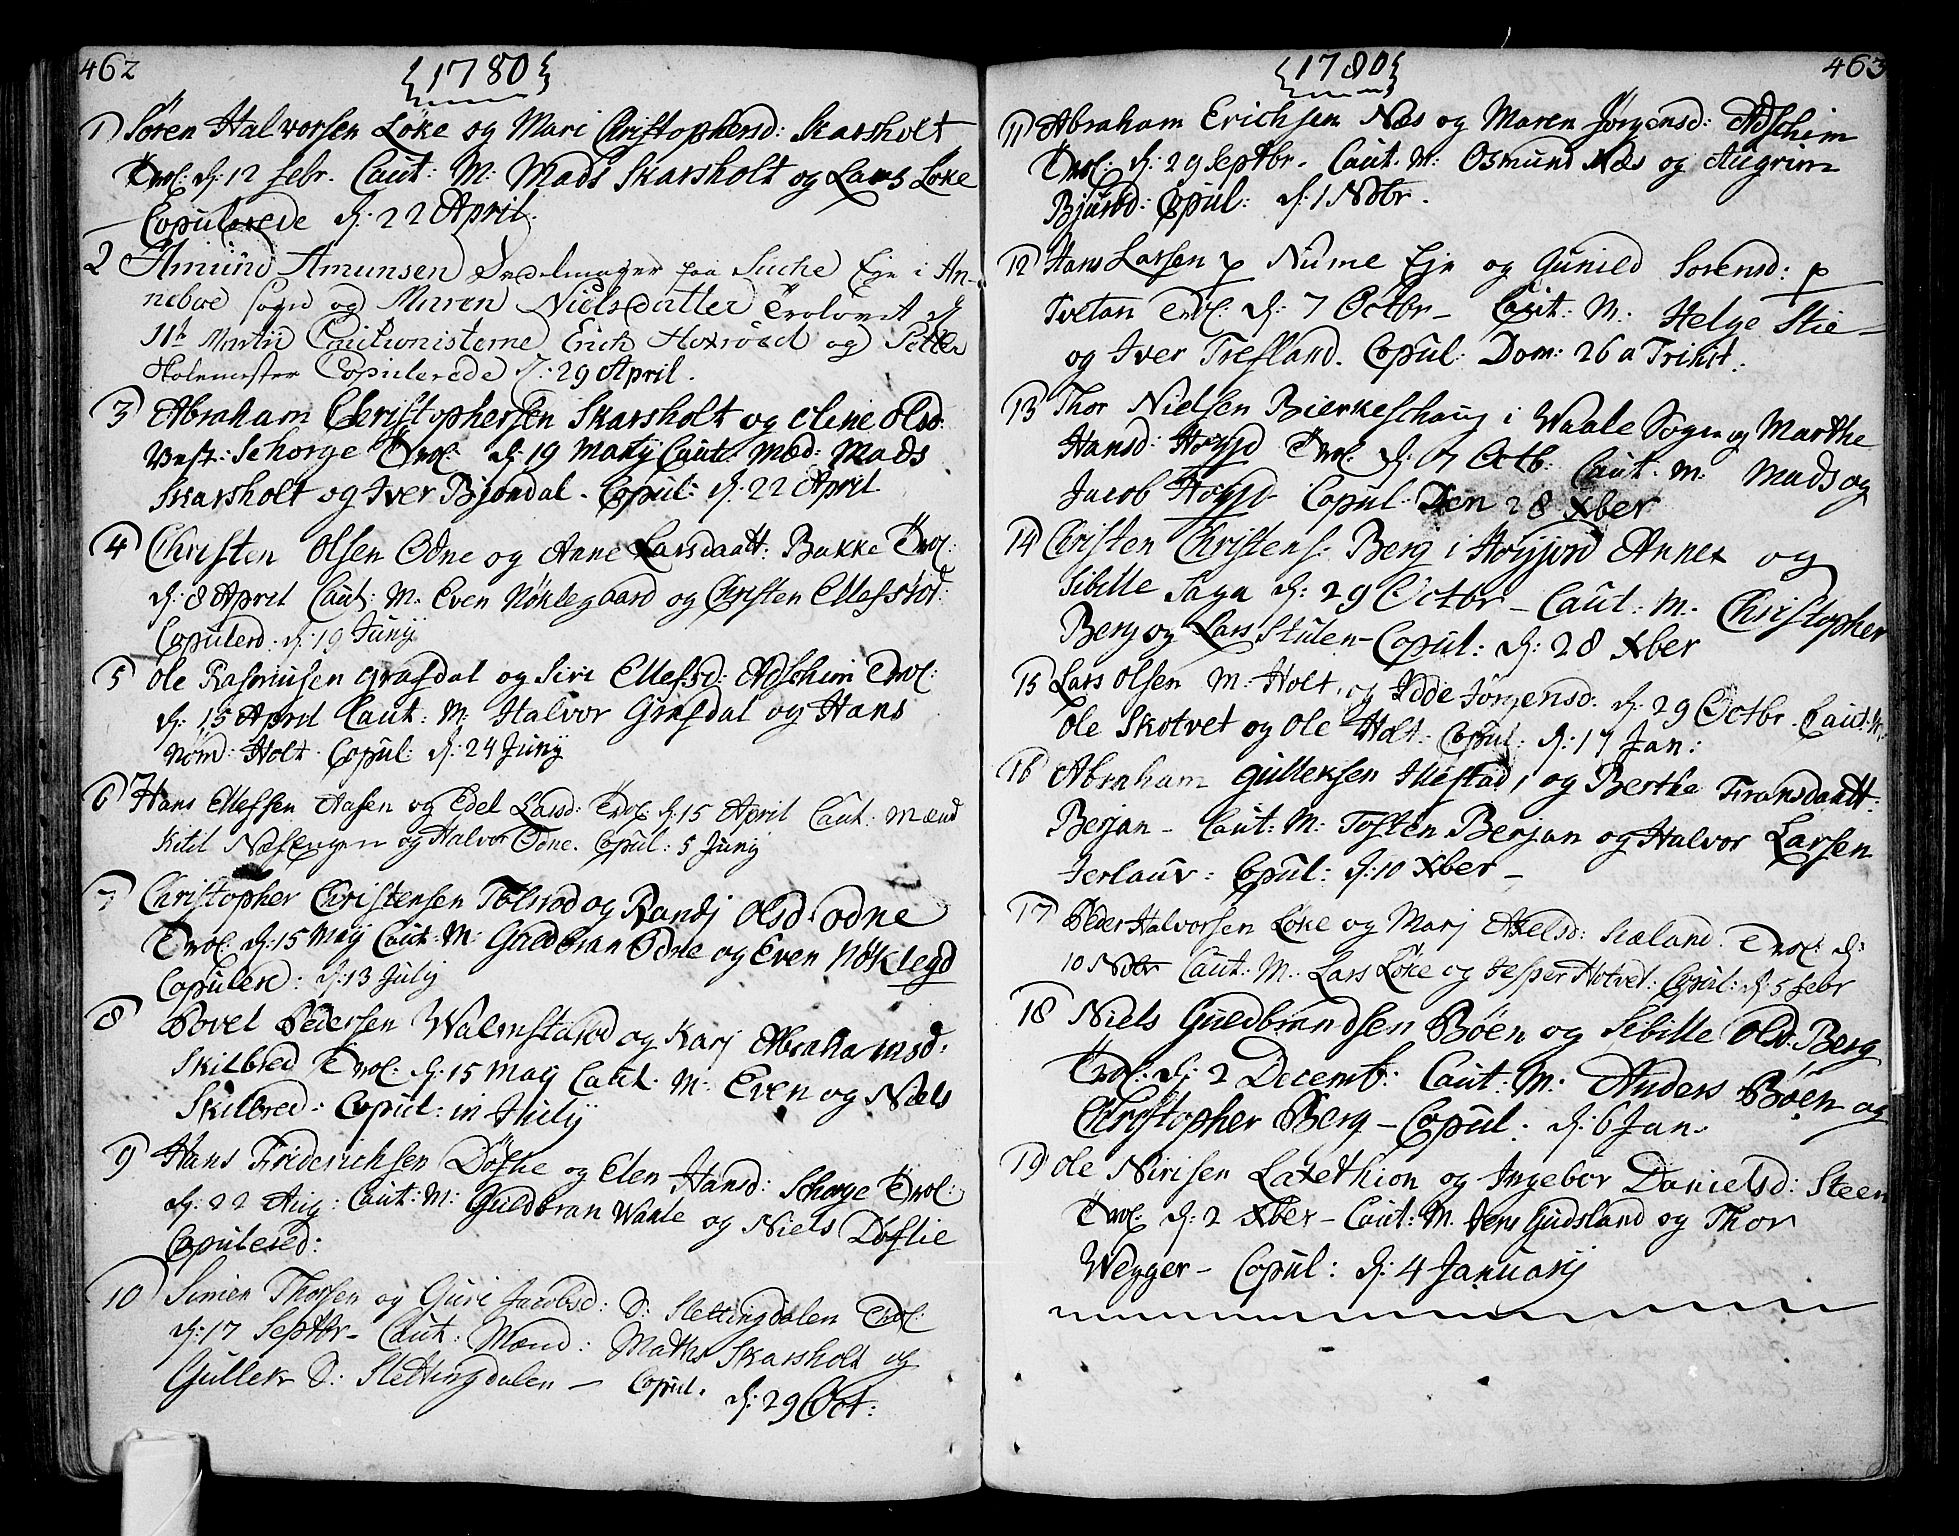 462
1780
1) Sören Halvorsen Löke og Mari Christophersd: Skarsholt
Trol: d: 12 febr. Caut: M: Mads Skarsholt og Lars Löke
Copulerede d: 22 April.
2 Amund Amunsen Sadelmager paa Eje i An-
neboe sogn og Maren Nielsdatter Trolovet d
11te Martii Cautionisterne Erich og Petter
Skolemester Copulerede d: 29 April.
3) Abraham Christophersen Skarsholt og Eline Olsd:
Vest: Schorge Trol: d: 19 Martij Caut: Med: Mads
Skarsholt og Iver Bjöndal. Copul: d: 22 April
4) Christen Olsen Odne og Anne Larsdaatt: Bakke Trol:
d: 8 April Caut: M. Even Nöklegaard og Christen Ellefsröd:
Copulerd. d: 19 Junij
5) Ole Rasmusen Grafdal og Siri Ellefsd: Adschim Trol:
d: 15 April Caut: M: Halvor Grafdal og Hans
Nord: Holt. Copul: d: 24 Junij
6) Hans Ellefsen Aasen og Edel Larsd: Trol: d: 15 April Caut: Mænd
Kitil Næsengen og Halvor Odne. Copul: 5 Junij
7 Christopher Christensen Tolsrod og Randj Olsd: Odne
Trol: d: 15 Maij Caut: M: Guldbran Odne og Even Nöklegd
Copulerd: d: 13 Julij
8 Povel Pedersen Walmestad og Karj Abrahamsd:
Skilbred Trol: d: 15 Maij Caut: M: Even og Niels
Skilbred: Copul: in Julij
9) Hans Friderichsen Döflie og Elen Hansd: Schorge Trol:
d: 22 Aug: Caut: M: Guldbran Waale og Niels Döflie
Copulered:
10) Simen Thorsen og Guri Jacobsd: S: Slettingdalen Trol:
d: 17 Septbr- Caut: Mænd: Mathis Skarsholt og
Gullek S: Slettingdalen - Copul. d: 29 Oct:
463
1780
11) Abraham Erichsen Næs og Maren Jörgensd: Adschim
Trol: d: 29 Septbr- Caut. M: Osmund Næs og Augrim
Bjuröd: Copul: d: 1 Novbr.
12 Hans Larsen p Nume Eje og Gunild Sorensd: p
Tvetan Trol: d: 7 Octbr- Caut: M: Helge Stie-
og Iver Trefland. Copul: Dom: 26 a Trinit.
13 Thor Nielsen Bierkeschaug i Waale Sogn og Marthe
Hansd: Höyjd Trol: d: 7 Octb: Caut: M: Mads og
Jacob Höyjd Copul: Den 28 Xber
14 Christen Christens: Berg i Höyjord Annex og
Sibille Saga d: 29 Octbr - Caut: M: Christopher
Berg og Lars Stulen - Copul: d: 28 Xber
15 Lars Olsen M: Holt, og Idde Jörgensd: d: 29 Octbr. Caut: M.
Ole Skotvet og Ole Holt. Copul: d: 17 Jan:
16 Abraham Gulleksen Illestad, og Berthe Fransdaatt:
Berjan - Caut: M: Tosten Berjan og Halvor Larsen
Jerlauv: Copul: d: 10 Xber -
17 Peder Halvorsen Löke og Marj Axelsd: Sæland. Trol: d:
10 Novbr Caut: M: Lars Löke og Jesper Hotvet: Copul: d: 5 febr
18 Niels Guldbrandsen Böen og Sibille Olsd: Berg
Trol: d: 2 Decemb: Caut: M: Anders Böen og
Christopher Berg - Copul: d: 6 Jan.
19) Ole Nirisen Laxethion og Ingebor Danielsd: Steen
Trol: d: 2 Xber - Caut: M. Jens Gudsland og Thor
Wegger - Copul: d: 4 Januarij